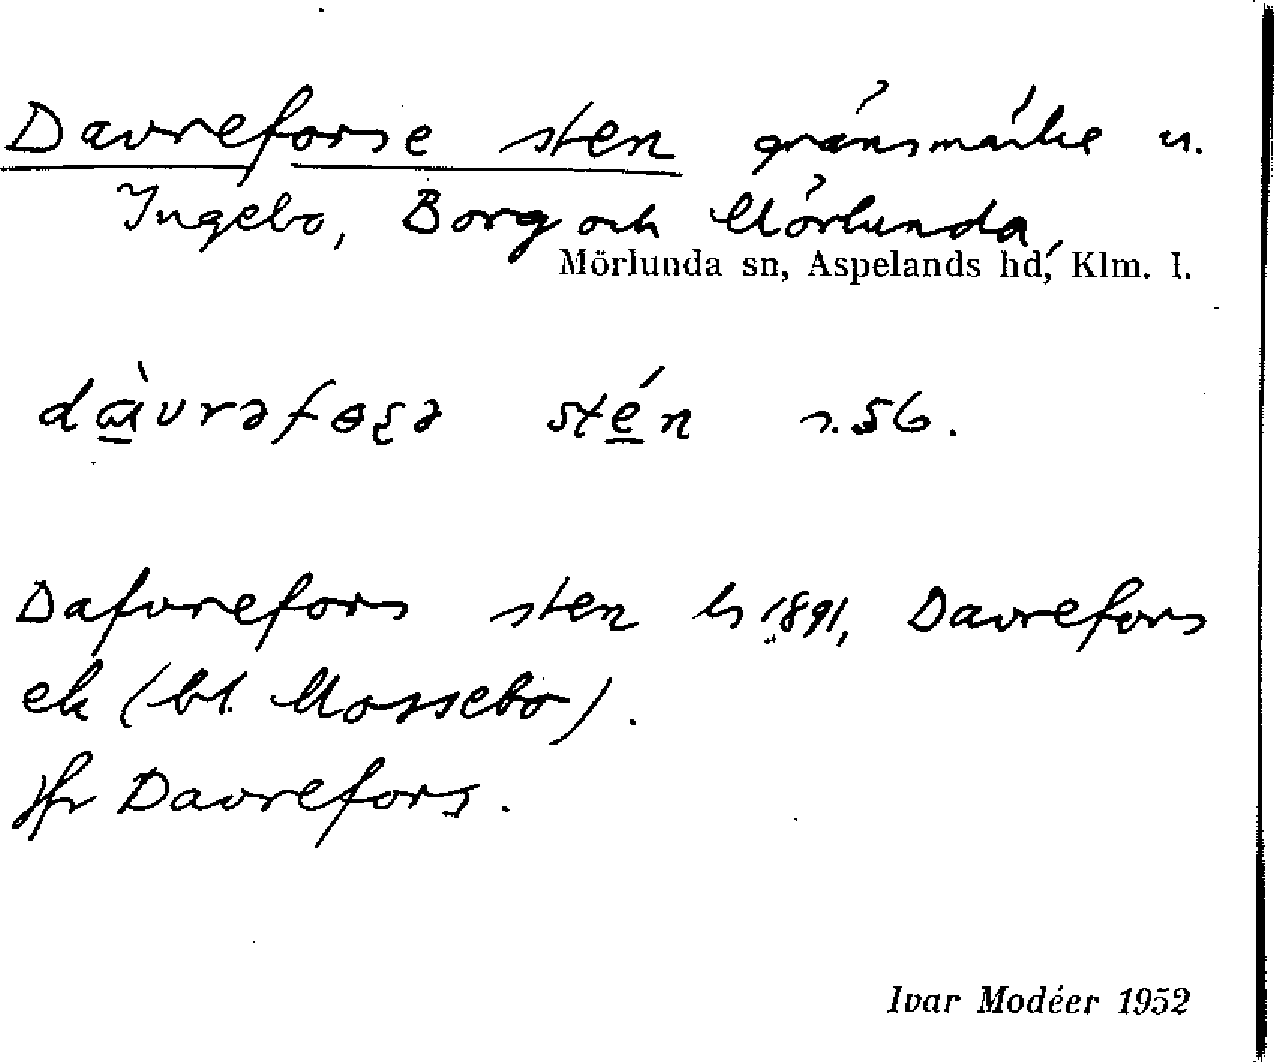 Davreforse sten gränsmärke u.
Ingebo, Borg och Mörlunda,
Mörlunda sn, Aspelands hd, Klm. l.
dɑ̀vrəfɵʂə stén
Dafvrefors sten 1891, Davrefors
ek (bl. Mossebo).
Jfr Davrefors.
Ivar Modéer 1952